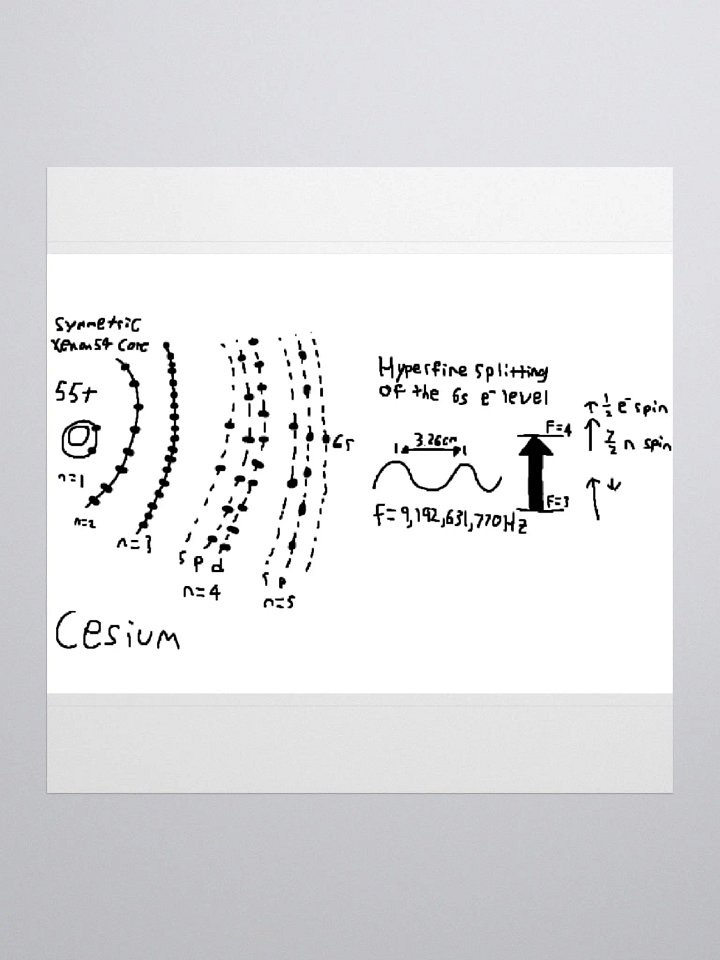 Symmetric
Xenon54 Core
55+
n=1
n=2
n=3
s p d
n=4
s p
n=5
6s
Cesium
Hyperfine splitting
of the 6s e⁻ level
3.26cm
f=9,192,631,770Hz
F=4
F=3
½ e⁻ spin
7/2 n spin